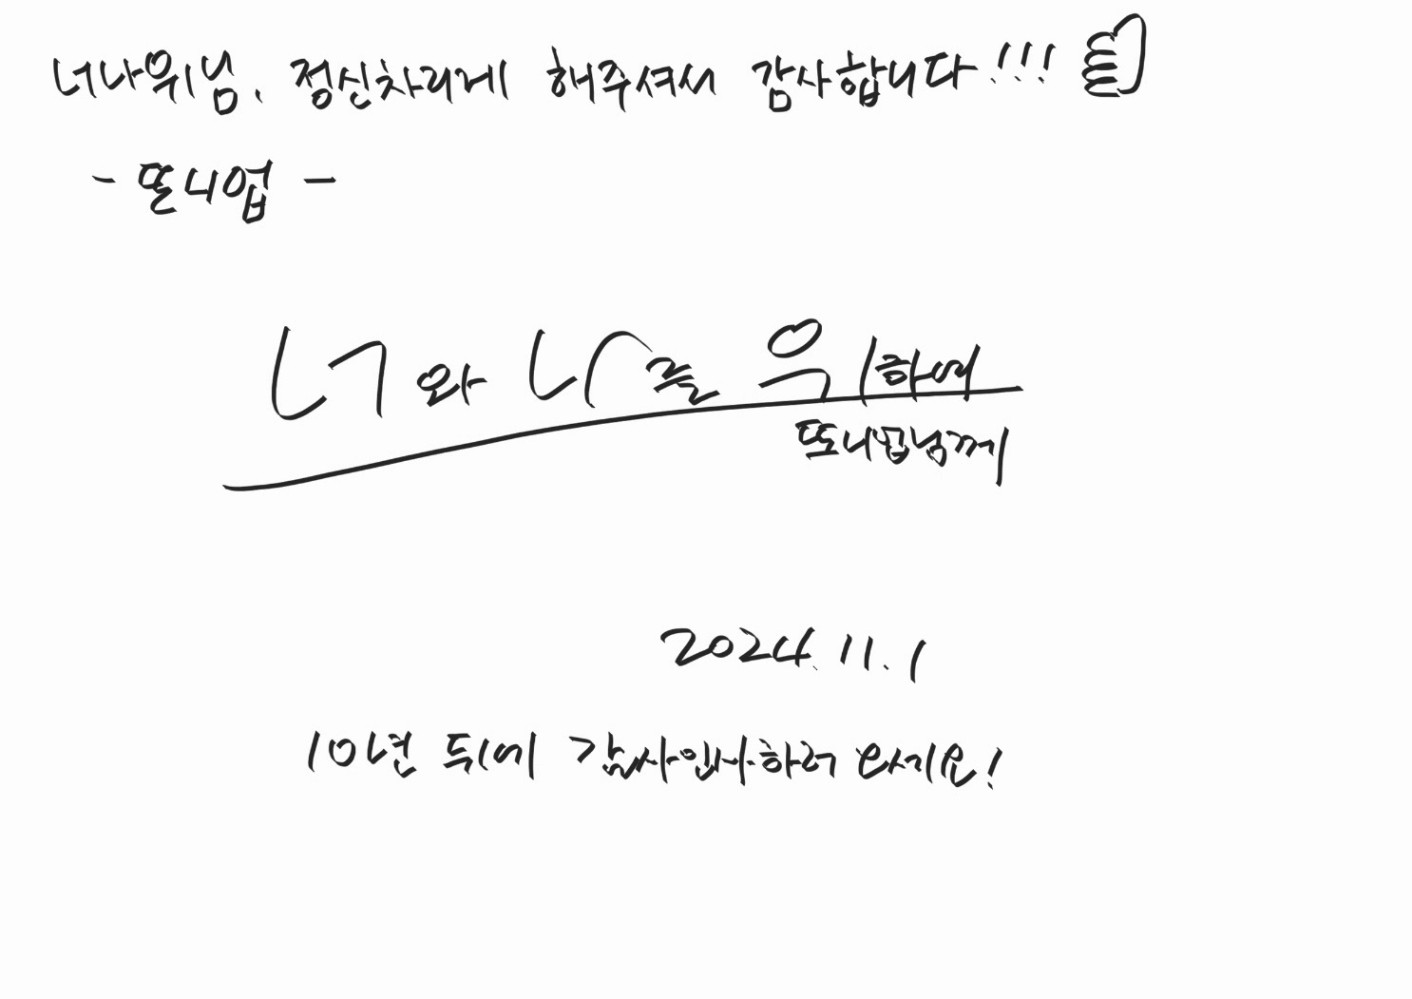 너나위님, 정신차리게 해주셔서 감사합니다!!!
- 또니업 -
너와 나를 위하여
또니업님께
2024. 11. 1
10년 뒤에 감사인사하러 오세요!